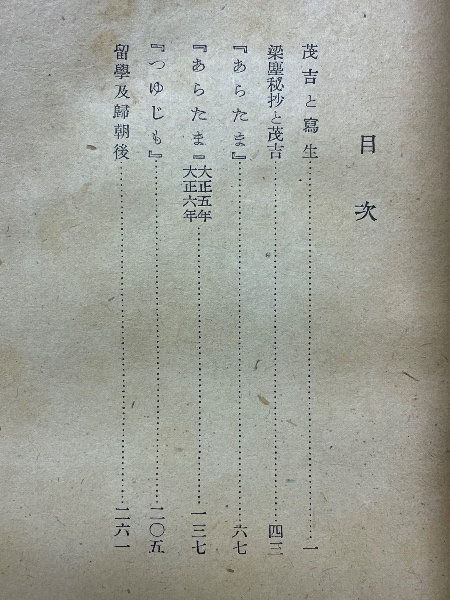 目次
茂吉と寫生……一
梁塵秘抄と茂吉……四三
『あらたま』……六七
『あらたま』大正五年大正六年……一三七
『つゆじも』……二〇五
留學及歸朝後……二六一